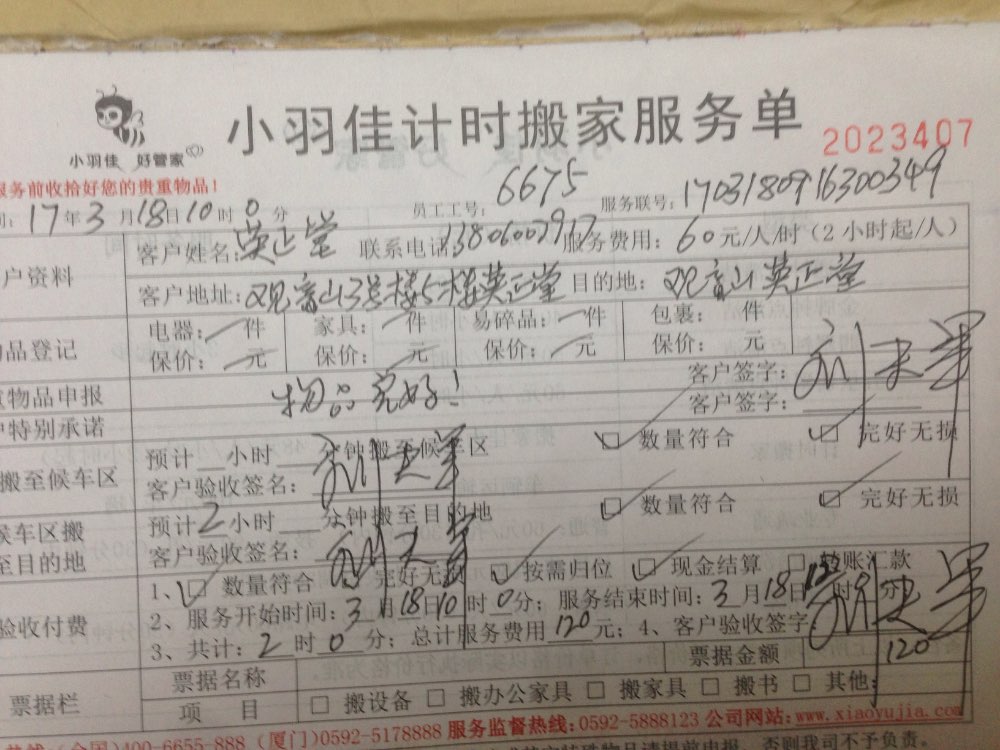 小羽佳计时搬家服务单
小羽佳 好管家
2023407
服务前收拾好您的贵重物品!
17年3月18日10时0分 员工工号: 6675 服务联号: 1703180916300349
户资料 客户姓名: 英正堂 联系电话 服务费用: 60元/人/时(2小时起/人)
客户地址: 观音山3号楼5楼英正堂 目的地: 观音山英正堂
品登记 电器: 件 家具: 件 易碎品: 件 包裹: 件
保价: 元 保价: 元 保价: 元 保价: 元
物品申报 物品完好! 客户签字:
特别承诺 客户签字:
搬至候车区 预计 小时 分钟搬至候车区 数量符合 完好无损
客户验收签名:
候车区搬至目的地 预计2小时 分钟搬至目的地 数量符合 完好无损
客户验收签名:
验收付费 1、 数量符合 完好无损 按需归位 现金结算 转账汇款
2、服务开始时间: 3月18日10时0分; 服务结束时间: 3月18日12时0分
3、共计: 2时0分; 总计服务费用120元; 4、客户验收签字
票据栏 票据名称 票据金额 120
项 目 搬设备 搬办公家具 搬家具 搬书 其他:
400-6655-888 (厦门)0592-5178888 服务监督热线: 0592-5888123 公司网站: www.xiaoyujia.com